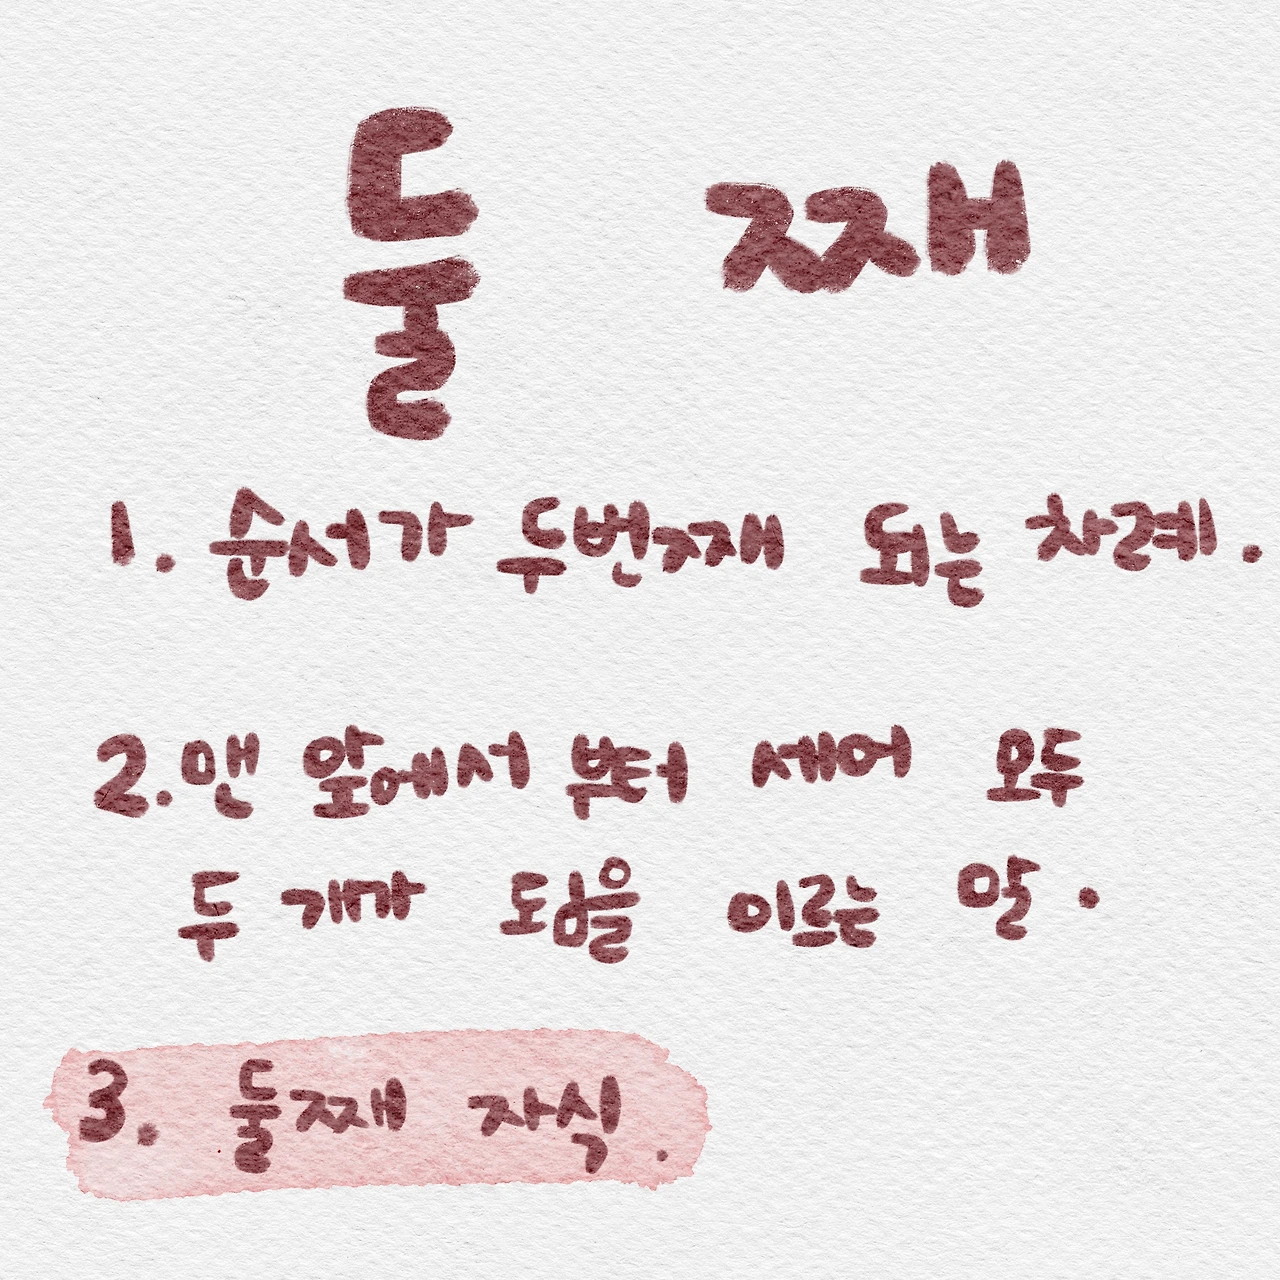 둘 째
1. 순서가 두번째 되는 차례.
2. 맨 앞에서 부터 세어 모두
두 개까 도임을 이르는 말.
3. 둘째 자식.